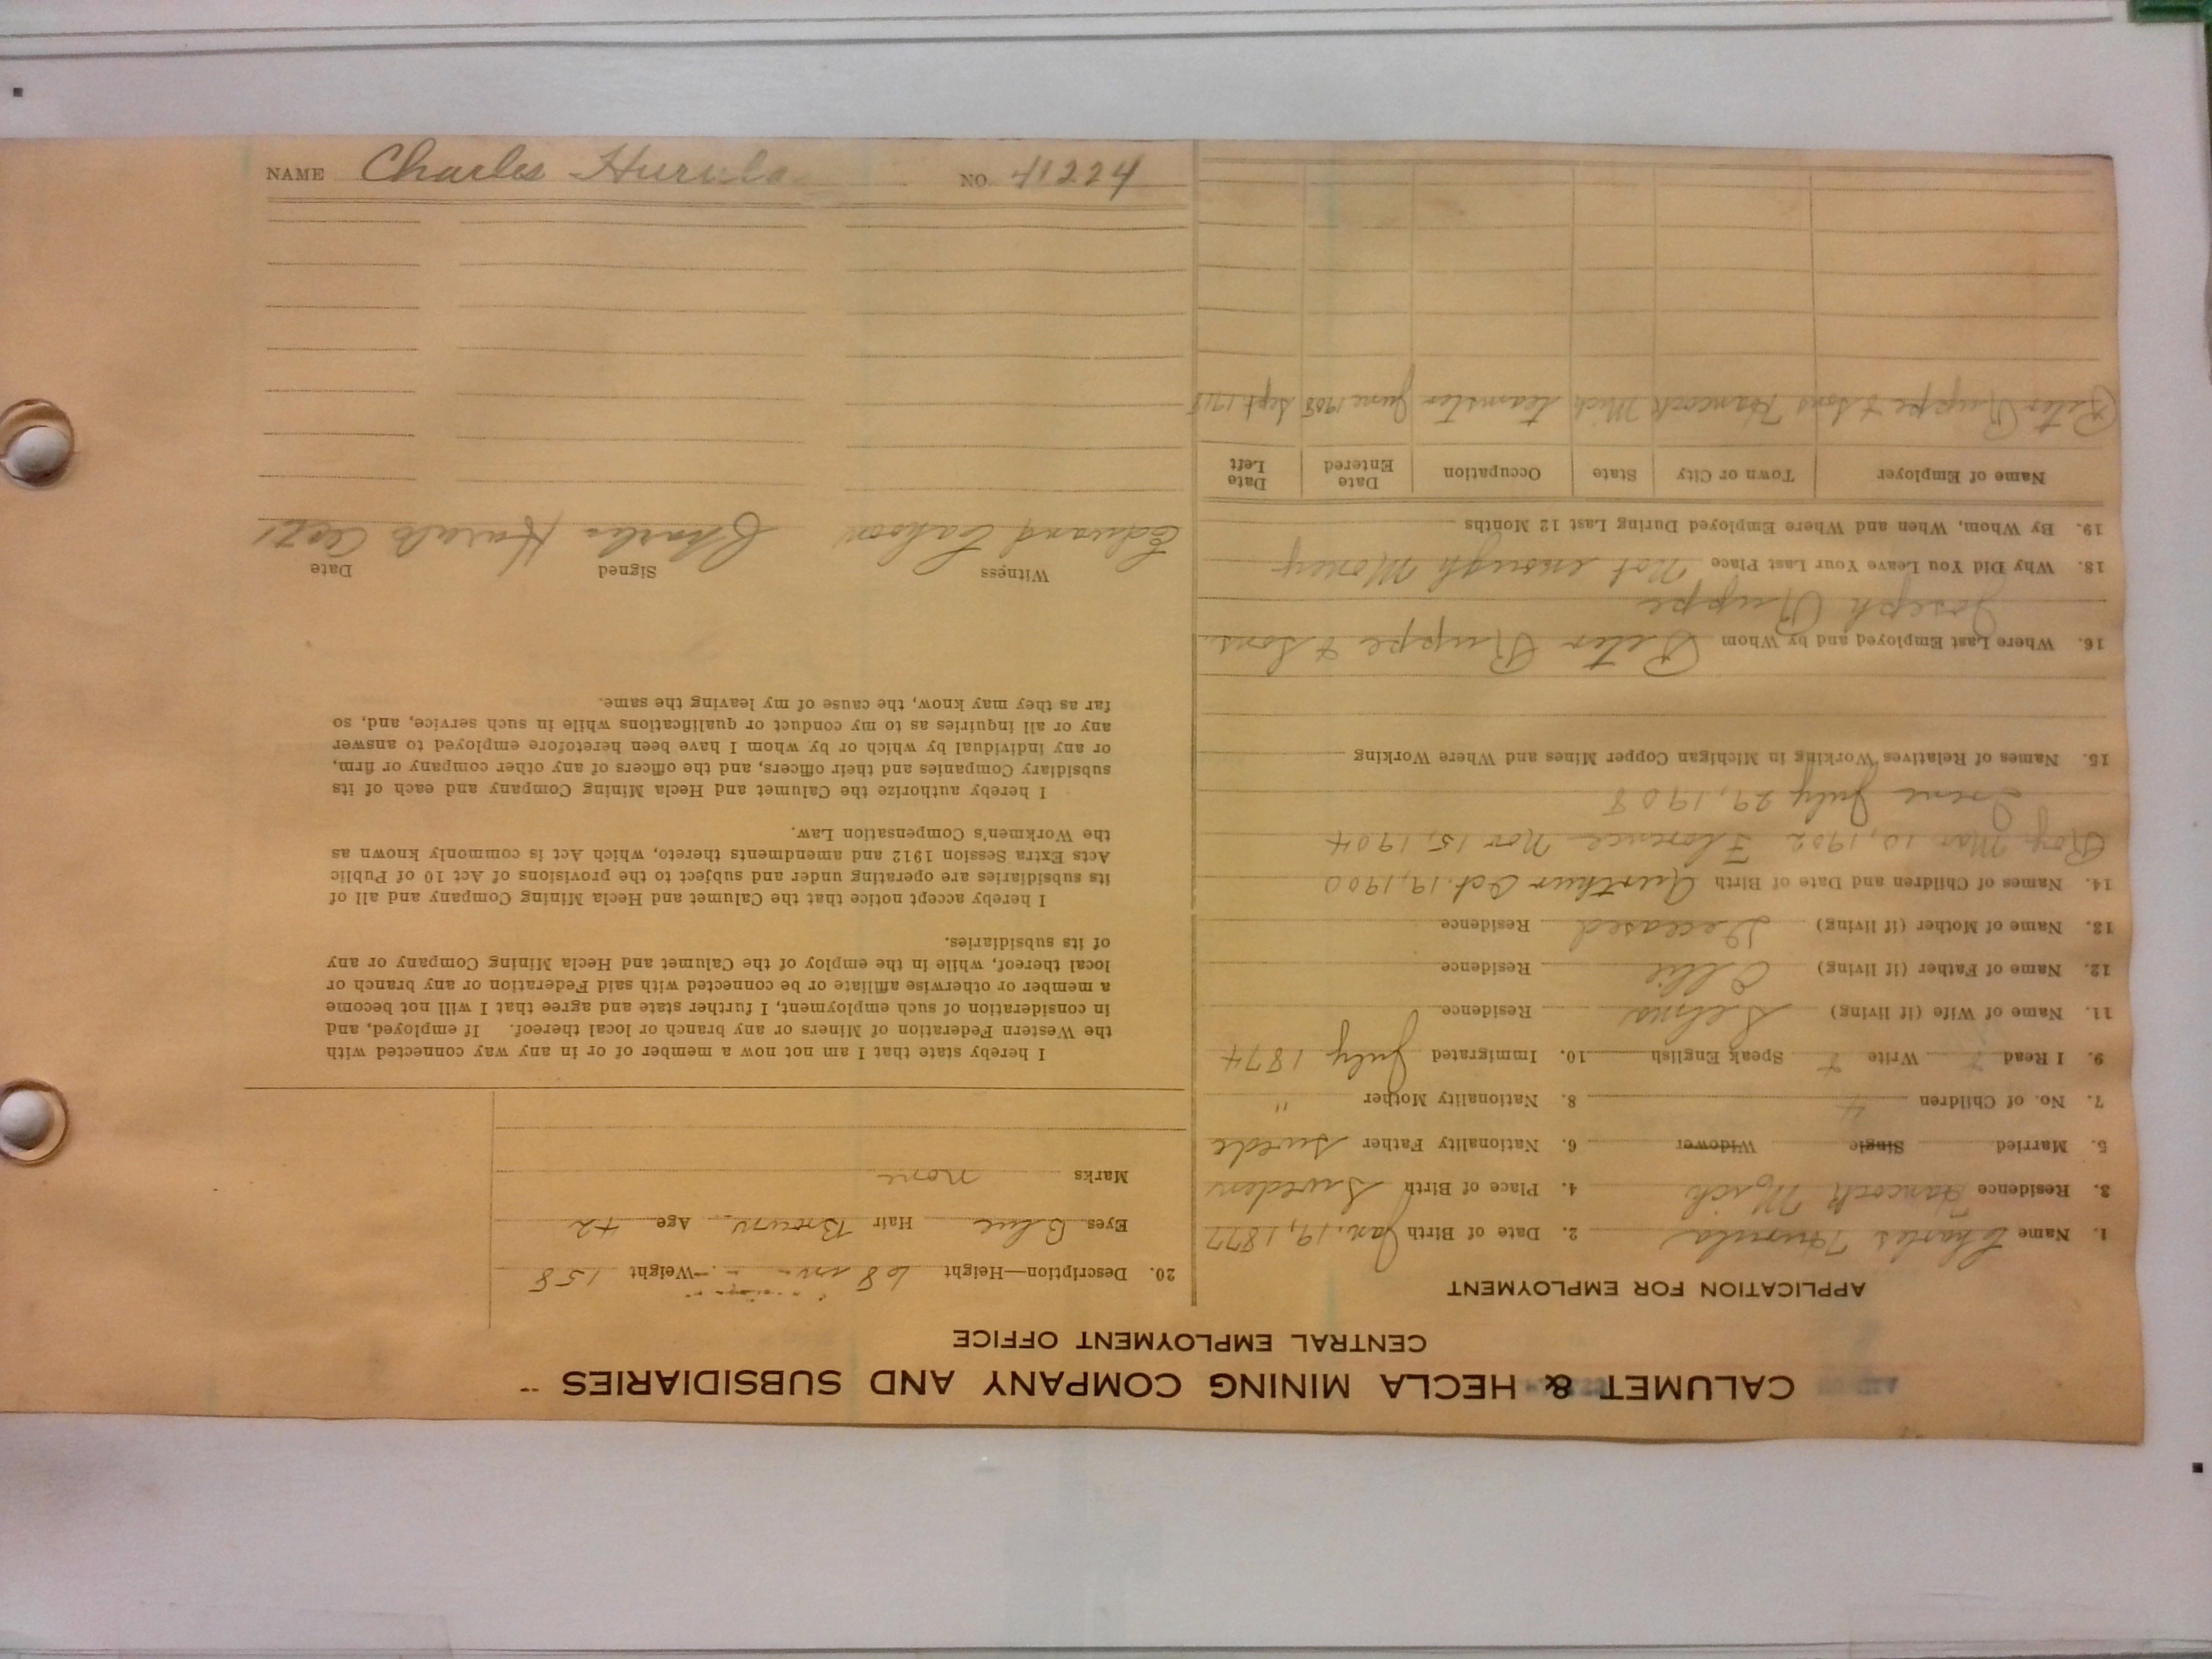 CALUMET & HECLA MINING COMPANY AND SUBSIDIARIES
CENTRAL EMPLOYMENT OFFICE
APPLICATION FOR EMPLOYMENT
1. Name Charles Hurula 2. Date of Birth Jan. 19, 1877
3. Residence Hancock Mich 4. Place of Birth Sweden
5. Married Single Widower 6. Nationality Father Swede
7. No. of Children 4 8. Nationality Mother "
9. I Read Write Speak English 10. Immigrated July 1874
11. Name of Wife (if living) Selma Residence
12. Name of Father (if living) Residence
13. Name of Mother (if living) Deceased Residence
14. Names of Children and Date of Birth Aurthur Oct. 19, 1900
Roy Mar 10, 1902 Florence Nov 15, 1904
Irene July 29, 1908
15. Names of Relatives Working in Michigan Copper Mines and Where Working
16. Where Last Employed and by Whom Peter Ruppe & Sons.
Joseph Ruppe
18. Why Did You Leave Your Last Place Not enough Money
19. By Whom, When and Where Employed During Last 12 Months
Name of Employer Town or City State Occupation Date Entered Date Left
Peter Ruppe & Sons Hancock Mich teamster June 1908 Sept
20. Description—Height 68 in Weight 158
Eyes Blue Hair Brown Age 42
Marks none
I hereby state that I am not now a member of or in any way connected with
the Western Federation of Miners or any branch or local thereof. If employed, and
in consideration of such employment, I further state and agree that I will not become
a member or otherwise affiliate or be connected with said Federation or any branch or
local thereof, while in the employ of the Calumet and Hecla Mining Company or any
of its subsidiaries.
I hereby accept notice that the Calumet and Hecla Mining Company and all of
its subsidiaries are operating under and subject to the provisions of Act 10 of Public
Acts Extra Session 1912 and amendments thereto, which Act is commonly known as
the Workmen's Compensation Law.
I hereby authorize the Calumet and Hecla Mining Company and each of its
subsidiary Companies and their officers, and the officers of any other company or firm,
or any individual by which or by whom I have been heretofore employed to answer
any or all inquiries as to my conduct or qualifications while in such service, and, so
far as they may know, the cause of my leaving the same.
Witness Signed Date
Edward Charles
NAME Charles Hurula NO. 41224